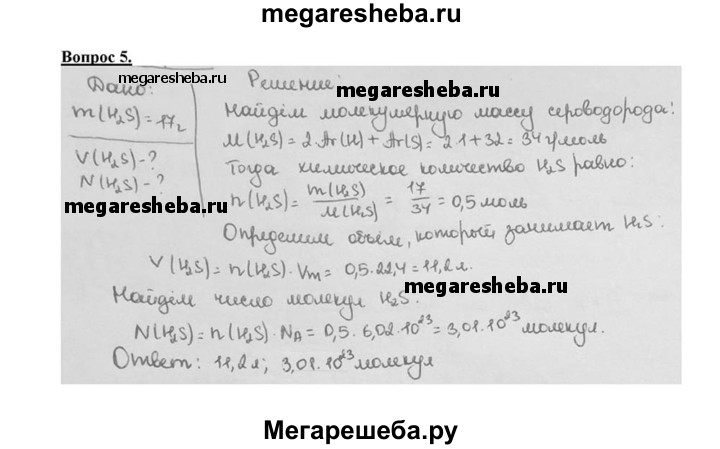 megaresheba.ru
Вопрос 5.
Дано:
m(H₂S)=17г
V(H₂S)-?
N(H₂S)-?
megaresheba.ru
Решение:
megaresheba.ru
Найдём молекулярную массу сероводорода:
M(H₂S)=2·Ar(H)+Ar(S)=2·1+32=34г/моль
Тогда химическое количество H₂S равно:
n(H₂S)=m(H₂S)/M(H₂S)=17/34=0,5 моль
megaresheba.ru
Определим объём, который занимает H₂S:
V(H₂S)=n(H₂S)·Vm=0,5·22,4=11,2л.
megaresheba.ru
Найдём число молекул H₂S:
N(H₂S)=n(H₂S)·NA=0,5·6,02·10²³=3,01·10²³молекул.
Ответ: 11,2л; 3,01·10²³молекул
Мегарешеба.ру